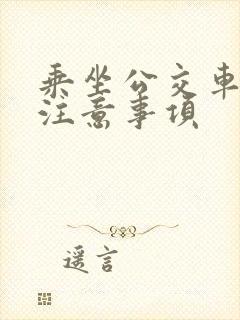 乘坐公交车
注意事项
遥言